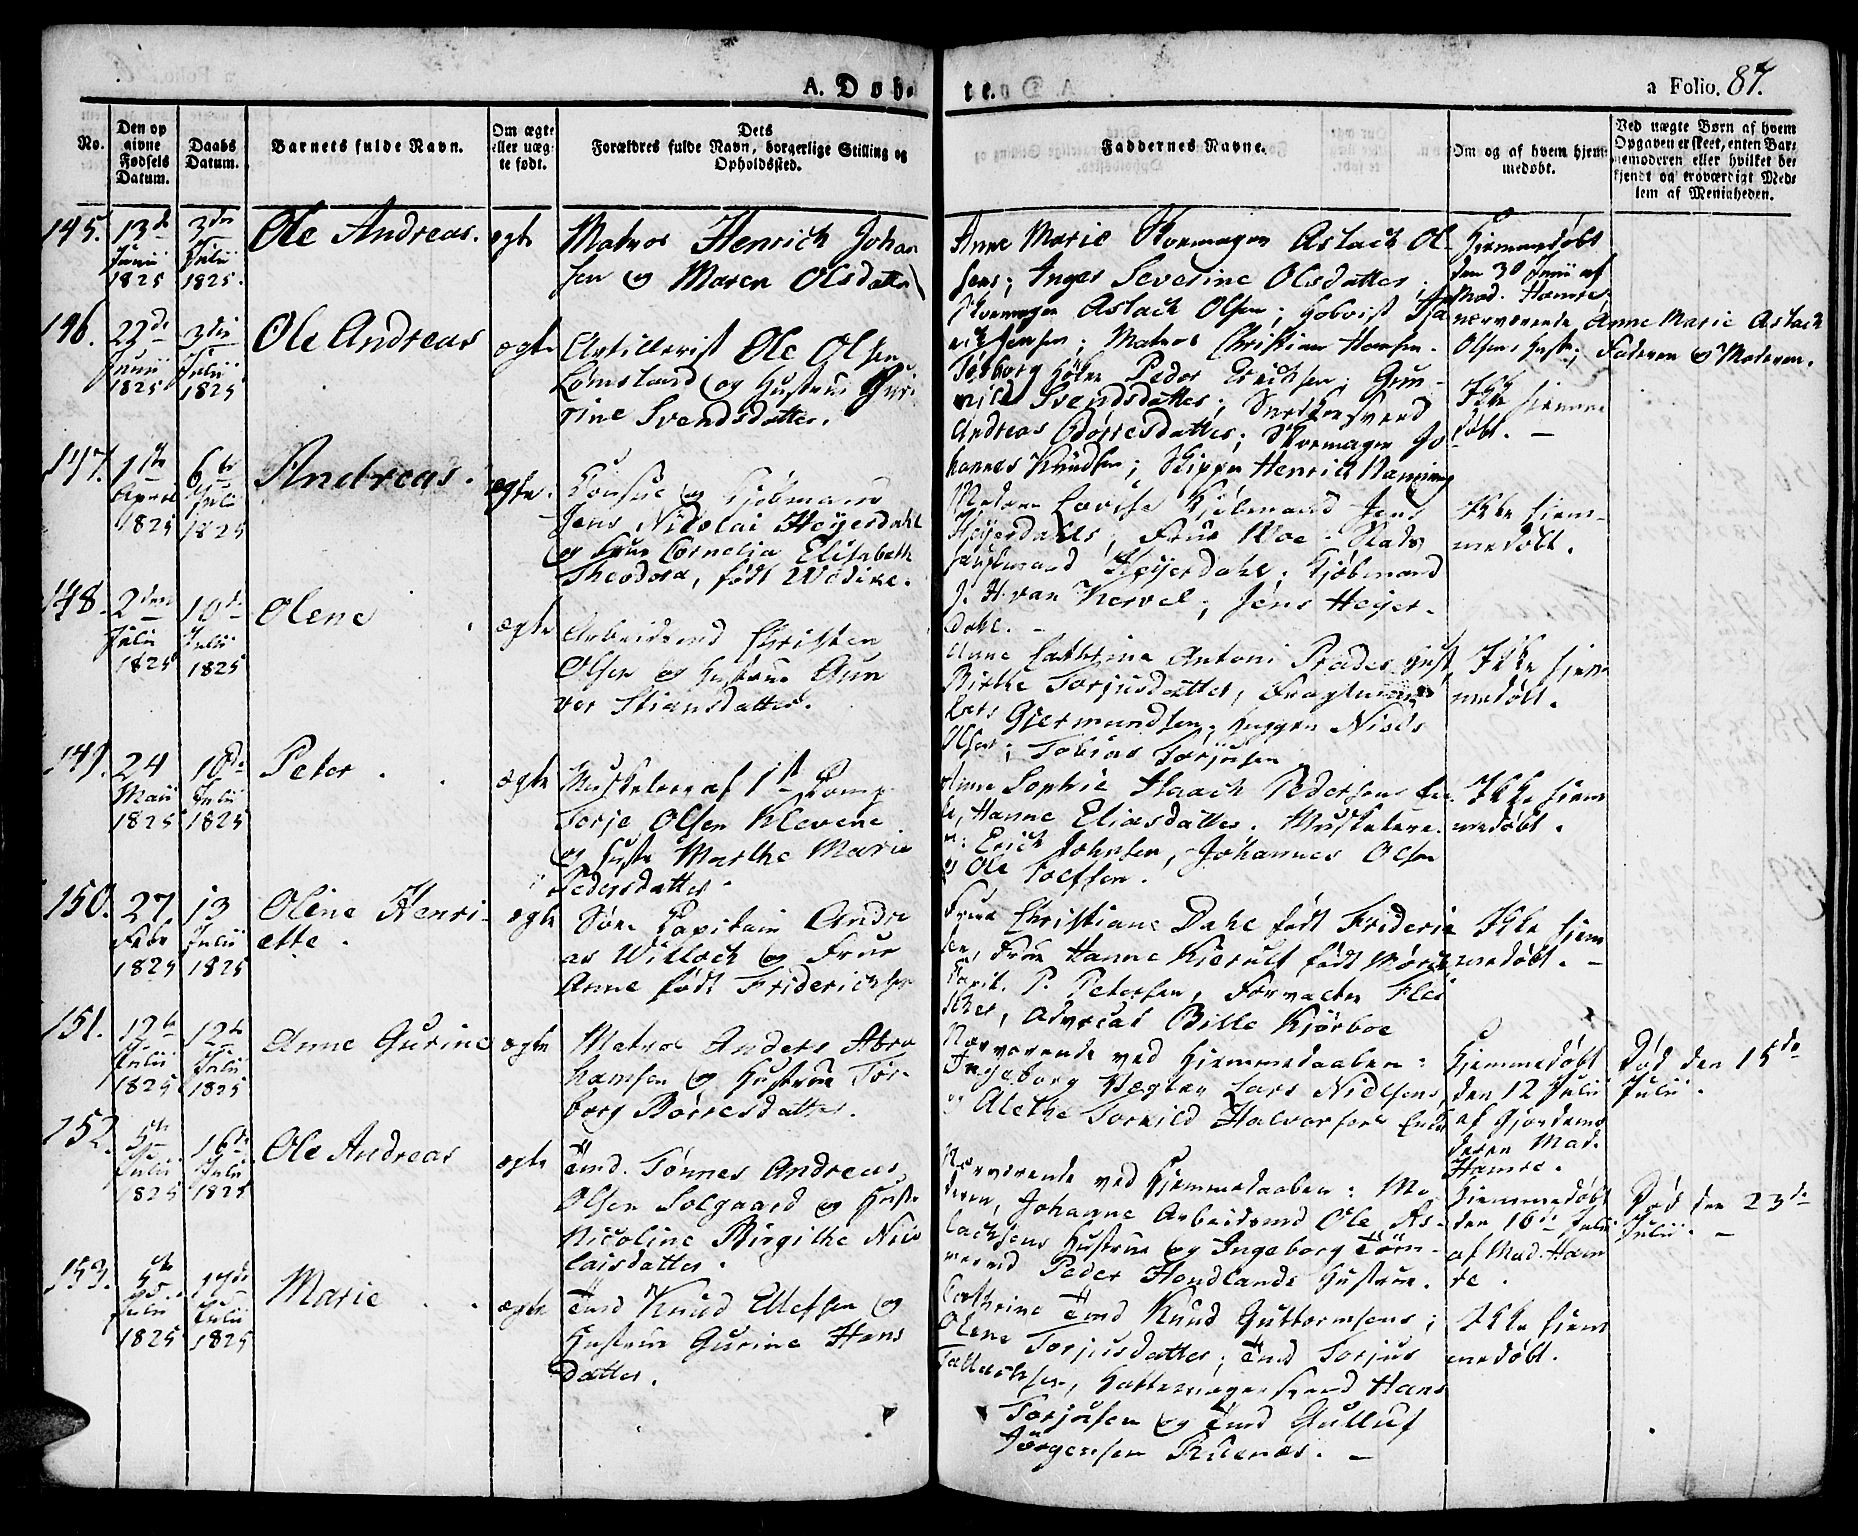 A. Døbte.
a Folio. 87.
No.
Den opgivne Fødsels Datum.
Daabs Datum.
Barnets fulde Navn.
Om ægte eller uægte født.
Dets Forældres fulde Navn, borgerlige Stilling og Opholdssted.
Faddernes Navne.
Om og af hvem hjemmedøbt.
Ved uægte Børn af hvem Opgaven er skeet, enten Barnemoderen eller hvilket bekjendt og troværdigt Medlem af Menigheden.
145. 13de Junii 1825
3die Julii 1825.
Ole Andreas.
ægte
Matros Henrich Johan
sen og Maren Olsdatter
Anne Marie Skomager Aslach Ol
sens; Inger Severine Olsdatter;
Skomager Aslach Olsen;
Matros Christian Hansen.
Hjemmedøbt
den 30 Junii af
Mad. Hamre
nærværende Anne Marie Aslach
Olsens Hustr; Faderen og Moderen.
146. 22de Junii 1825
3die Julii 1825
Ole Andreas
ægte
Artillerist Ole Olsen
Lømsland og Hustrue Gu
rine Svendsdatter.
Peder Erichsen; Gun
nild Svendsdatter;
Andreas Børresdatter; Skomager Jo
hannes Knudsen; Skipper Henrich Nanning
Ikke hjemme
døbt. —
147. 1ste April 1825
6te Julii 1825
Andreas.
ægte.
Consul og Kjøbmand
Jens Nicolai Heyerdahl
og Frue Cornelia Elisabeth
Theodora, født Wedine.
Madam Lovise Kjøbmand Jens
Heyerdahls, Frue Moe
Heyerdahl; Kjøbmand
J. H. van Kervel; Jens Heyer
dahl. —
Ikke hjem
medøbt.
148. 2den Julii 1825
10de Julii 1825
Olene
ægte
Arbeidsmd Christen
Olsen og Hustrue Gun
vor Stiansdatter.
Anne Cathrine Antoni Prades Hust,
Birthe Torjusdatter,
Lars Gjermundsen, Niels
Olsen; Tobias Torjusen
Ikke hjem
medøbt.
149. 24 Maii 1825
10de Julii 1825
Peter
ægte
Musketeer af 1st Comp.
Torje Olsen Klevene
og Hustr Marthe Marie
Pedersdatter.
Anne Sophie Haach Pedersens
Hanne Eliasdatter. Musketeer
Erich Johnsen, Johannes Olsen
og Ole Toefsen.
Ikke hjem
medøbt.
150. 27 Febr 1825
13 Julii 1825
Olene Henri
ette.
ægte
Søe Capitain Andre
as Willoch og Frue
Anne født Friderichsen
Frue Christiane Dahl født Frideric
sen, Frue Hanne Kierulf født Mørch
Capit. P. Petersen, Forvalter Flei
scher, Advocat Bille Kjørboe
Ikke hjem
medøbt. —
151. 12te Julii 1825
12te Julii 1825
Anne Gurine
ægte
Matros Anders Abra
hamsen og Hustrue Tor
borg Børresdatter.
Nærværende ved Hjemmedaaben:
Ingeborg Vægter Lars Nielsens
og Alethe Torkild Halvorsens Enke
Hjemmedøbt
den 12 Julii
af Gjordemo
deren Mad.
Hamre.
Død den 15de
Julii.
152. 5te Julii 1825
16de Julii 1825
Ole Andreas
ægte
Tmd. Tønnes Andreas
Olsen Solgaard og Hustr
Nicoline Birgithe Nico
laisdatter.
Nærværende ved Hjemmedaaben: Mo
deren, Johanne Arbeidsmd Ole As
lachsens Hustrue og Ingeborg Tøm
mermd Peder Haudlands Hustrue.
Hjemmedøbt
den 16de Julii
af Mad. Ham
re.
Død den 23de
Julii. —
153. 5te Julii 1825
17de Julii 1825
Marie
ægte
Tmd Knud Ellefsen og
Hustrue Gurine Hans
datter.
Cathrine Tmd Knud Guttormsens;
Olene Torjusdatter; Tmd Torjus
Tallachsen, Hattemager Svend Hans
Torjusen og Tmd Gulluf
Jørgensen Risenæs. —
Ikke hjem
medøbt.